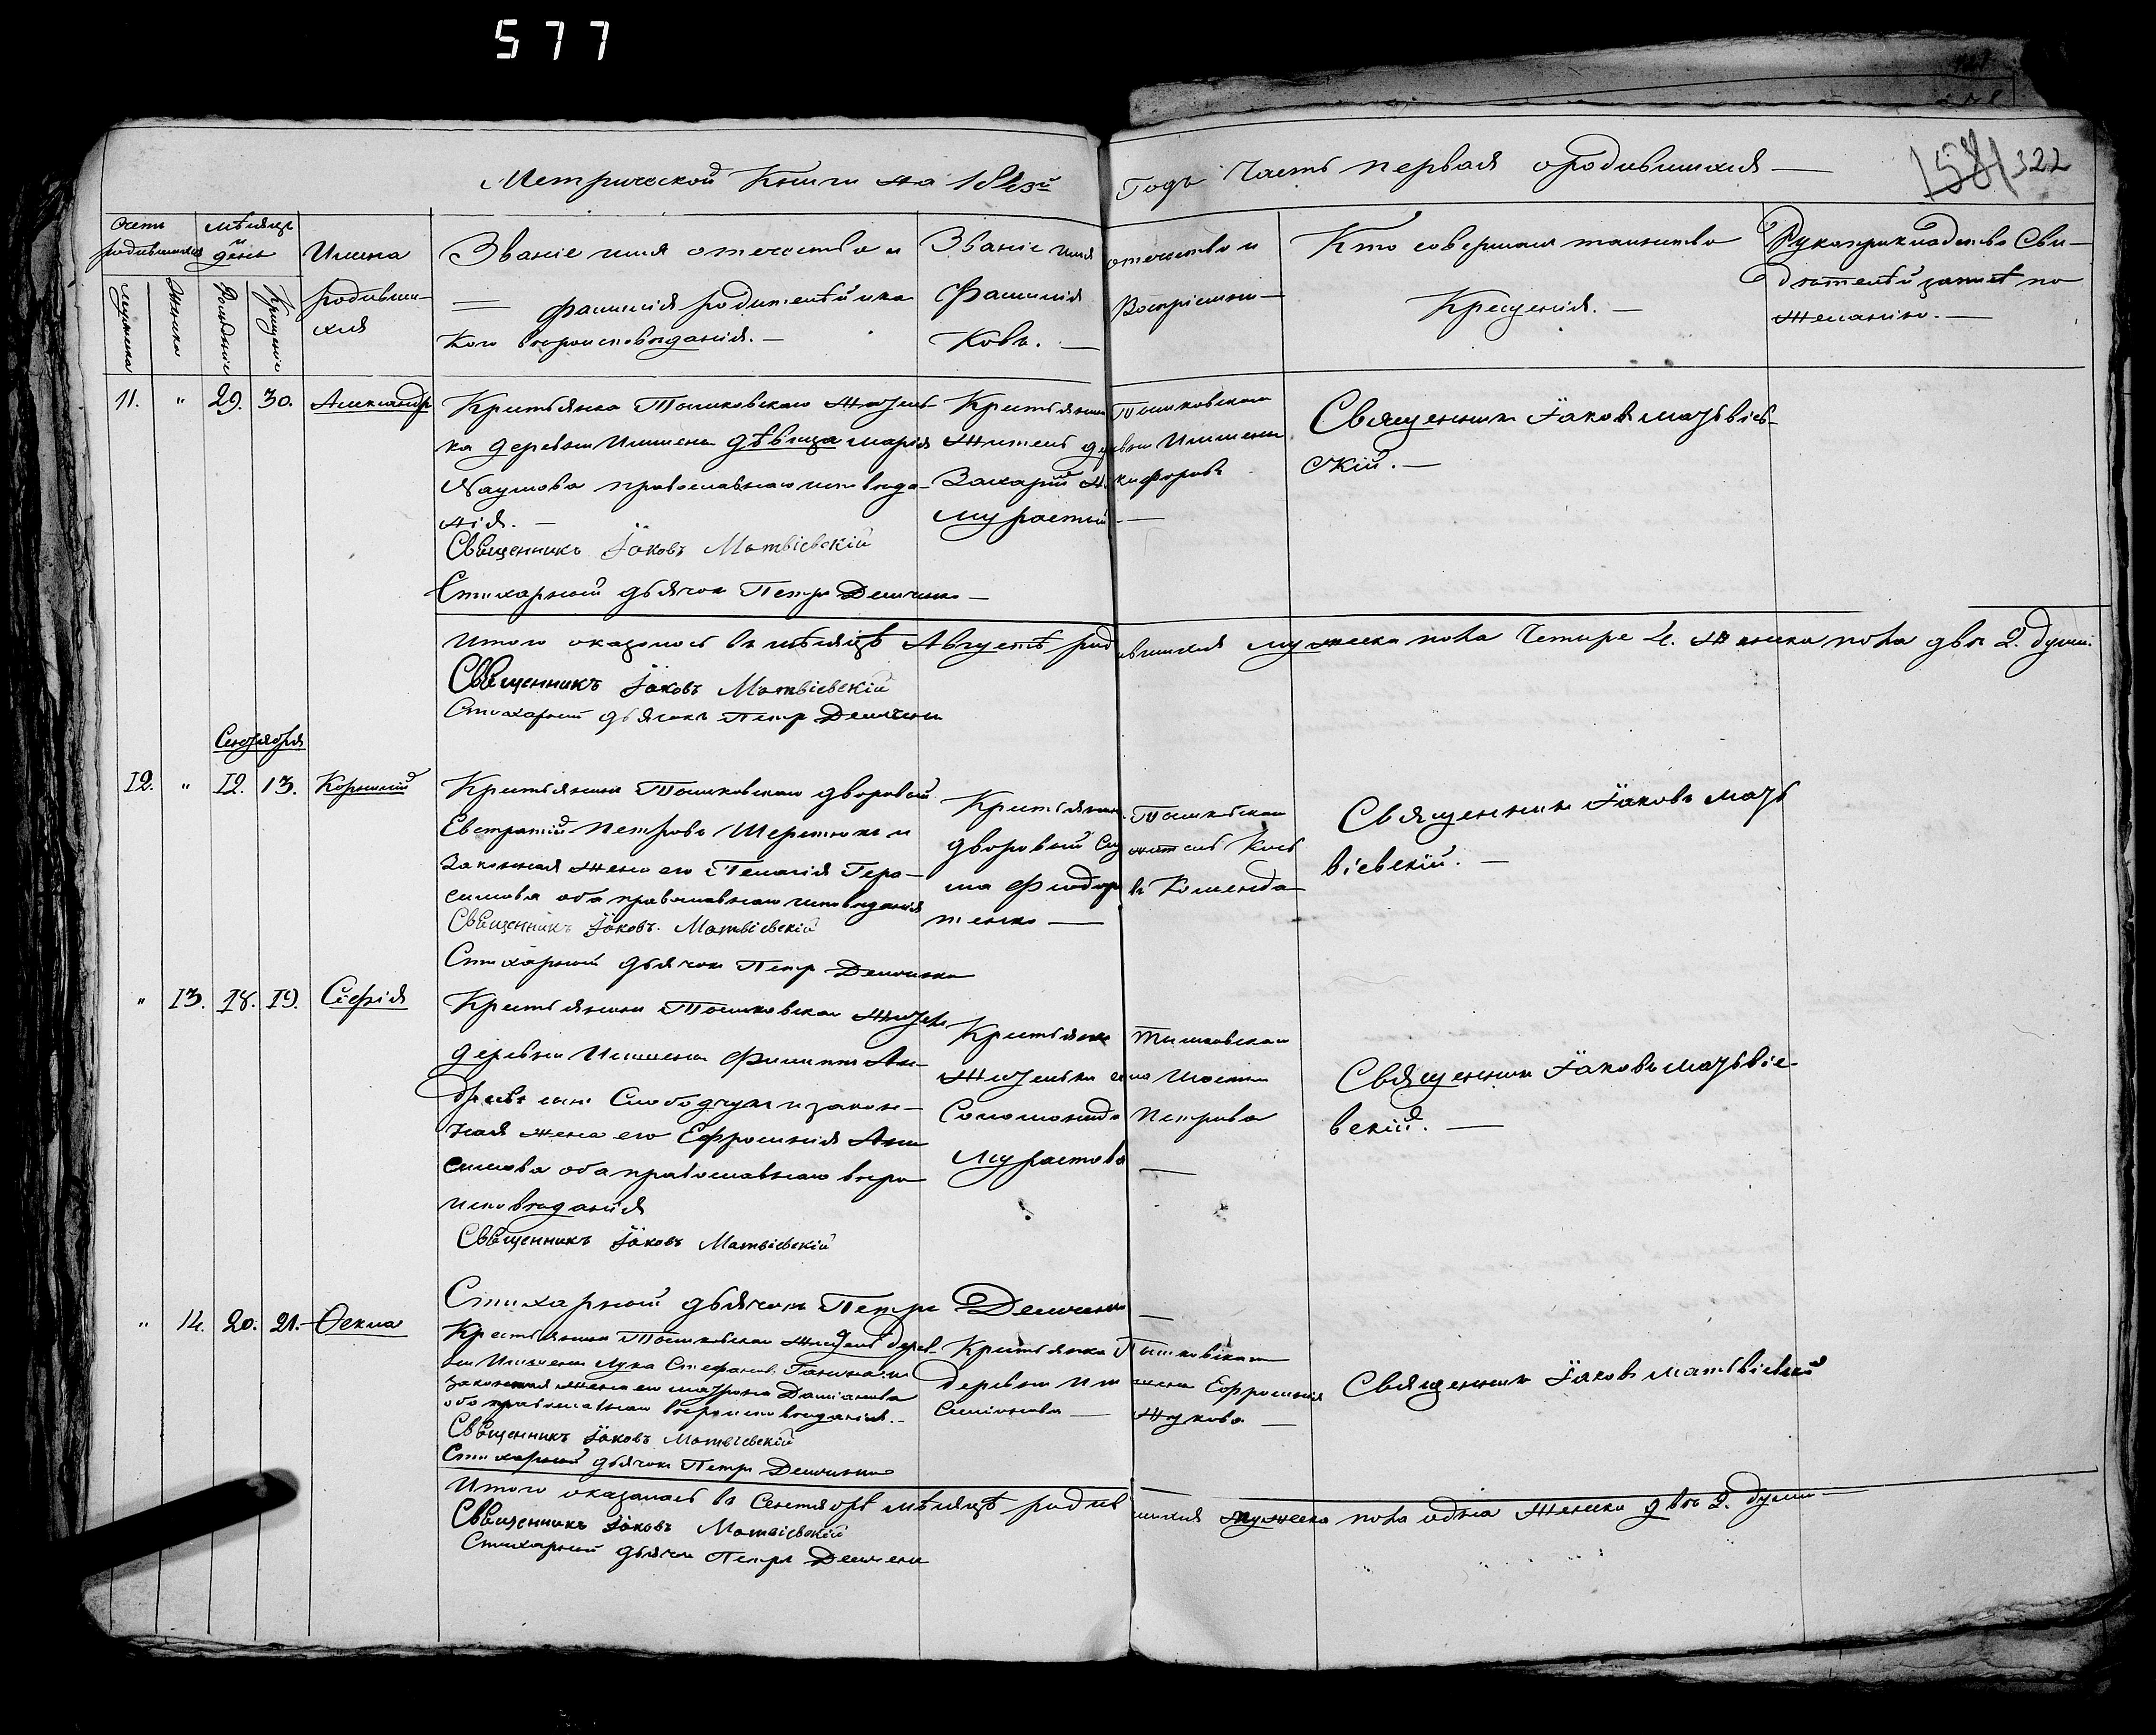 577
Метрической Книги на 1843й Годъ Часть первая о родившихся —
158 322
Счетъ родившихся
мѣсяцъ и день
Имена родивши-
хся
Званіе имя отечество и
фамилія родителей и ка
кого вѣроисповѣданія. —
Званіе имя отечество и
Фамилія Воспріемни-
ковъ. —
Кто совершалъ таинство
Крещенія. —
Рукоприкладство Сви-
дѣтелей записѣ по
желанію. —
мужеска
женска
Рожденія
Крещенія
11. " 29. 30. Александръ
Крестьянка Тошковская житель-
ка деревни Ишмени дѣвица Марія
Наумова православнаго исповѣда-
нія. —
Священникъ Іаковъ Матвіевскій
Стихарный дьячок Петръ
Крестьянинъ Тошковскаго
Житель деревни Ишмени
Захарій Никифоровъ
Мурастый —
Священникъ Іаковъ Матвіев-
скій. —
Итого оказалось въ мѣсяцѣ Августѣ родившихся мужеска пола Четыре 4. Женска пола двѣ 2. души.
Священникъ Іаковъ Матвіевскій
Стихарный дьячокъ Петръ
Сентября
12. " 12. 13. Корнилій
Крестьянинъ Тошковскаго дворовый
Евстратій Петровъ Шеретюкъ и
законная жена его Пелагія Гера-
симова оба православнаго исповѣданія
Священникъ Іаковъ Матвіевскій
Стихарный дьячок Петръ
Крестьянинъ
дворовый
ма Фиодоровъ Коменда
тенко —
Священникъ Іаковъ Матѣ
віевскій. —
" 13. 18. 19. Софія
Крестьянинъ Тошковскаго житель
деревни Ишмени Филиппъ Ан-
дреевъ сынъ Слободчукъ и закон-
ная жена его Ефросинія Ани
симова оба православнаго вѣро
исповѣданія
Священникъ Іаковъ Матвіевскій
Стихарный дьячокъ Петръ
Крестьянка Тошковская
Жителька
Соломонида Петрова
Мурастова —
Священникъ Іаковъ Матвіе-
вскій. —
" 14. 20. 21. Ѳекла
Крестьянинъ Тошковскаго житель дерев-
ни Ишмени Лука Стефановъ и
законная жена его Матрона Даміанова
оба православнаго вѣроисповѣданія. —
Священникъ Іаковъ Матвіевскій
Стихарный дьячок Петръ
Крестьянка Тошковская
деревни Ишмени Ефросинія
Симіонова — Жукова —
Священникъ Іаковъ Матвіевскій
Итого оказалось въ Сентябрѣ мѣсяцѣ родившихся мужеска пола одна женска двѣ 2. души —
Священникъ Іаковъ Матвіевскій
Стихарный дьячок Петръ